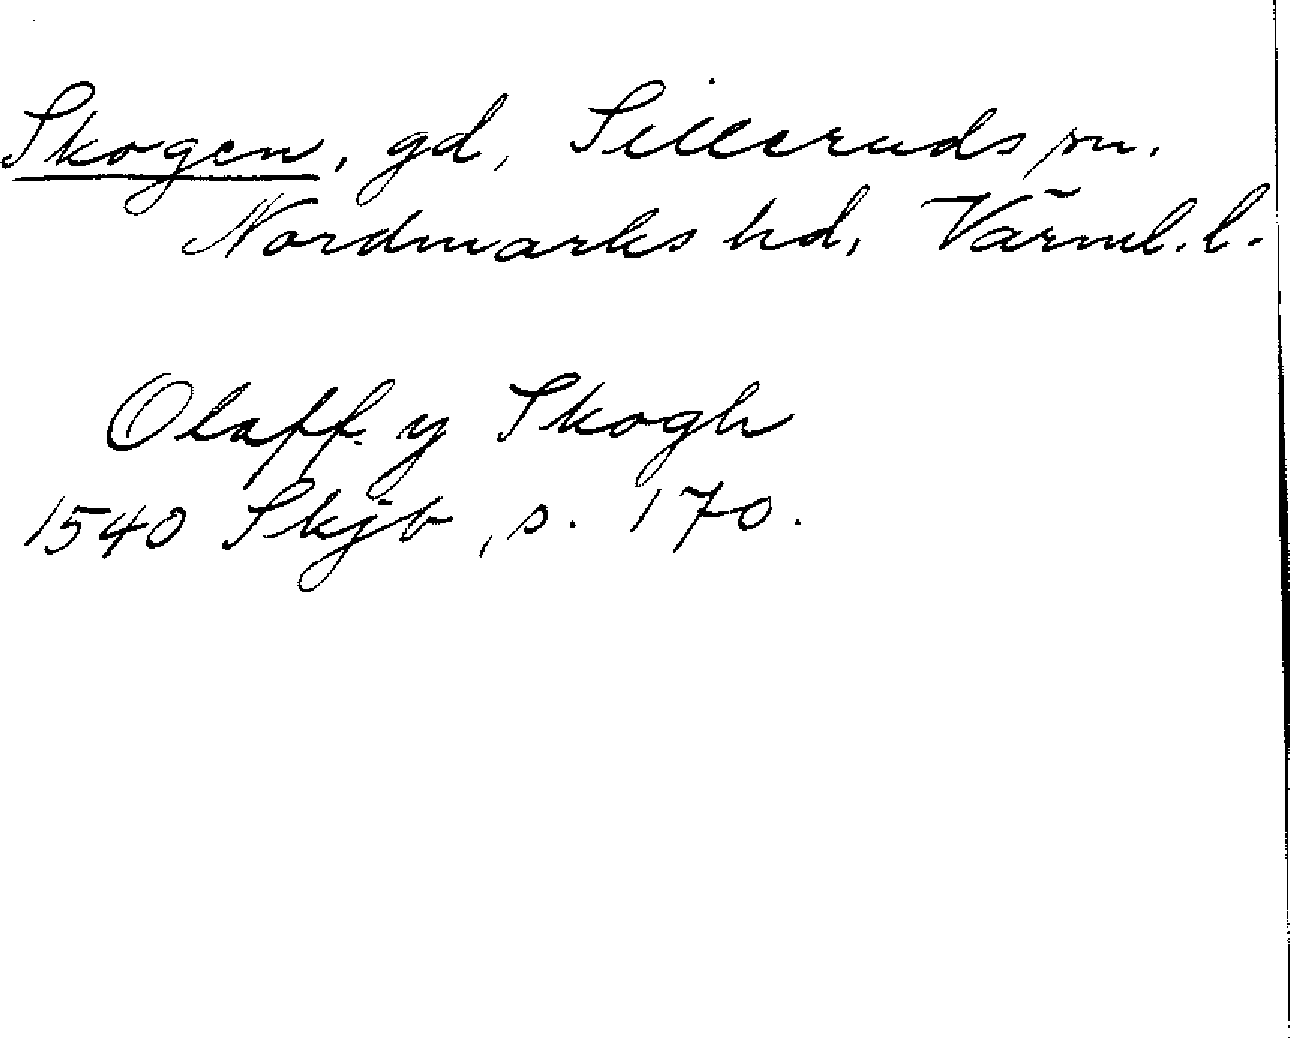 Skogen, gd, Silleruds sn.
Nordmarks hd, Värml. l.
Olaff y Skogh
1540 Skjb, s. 170.